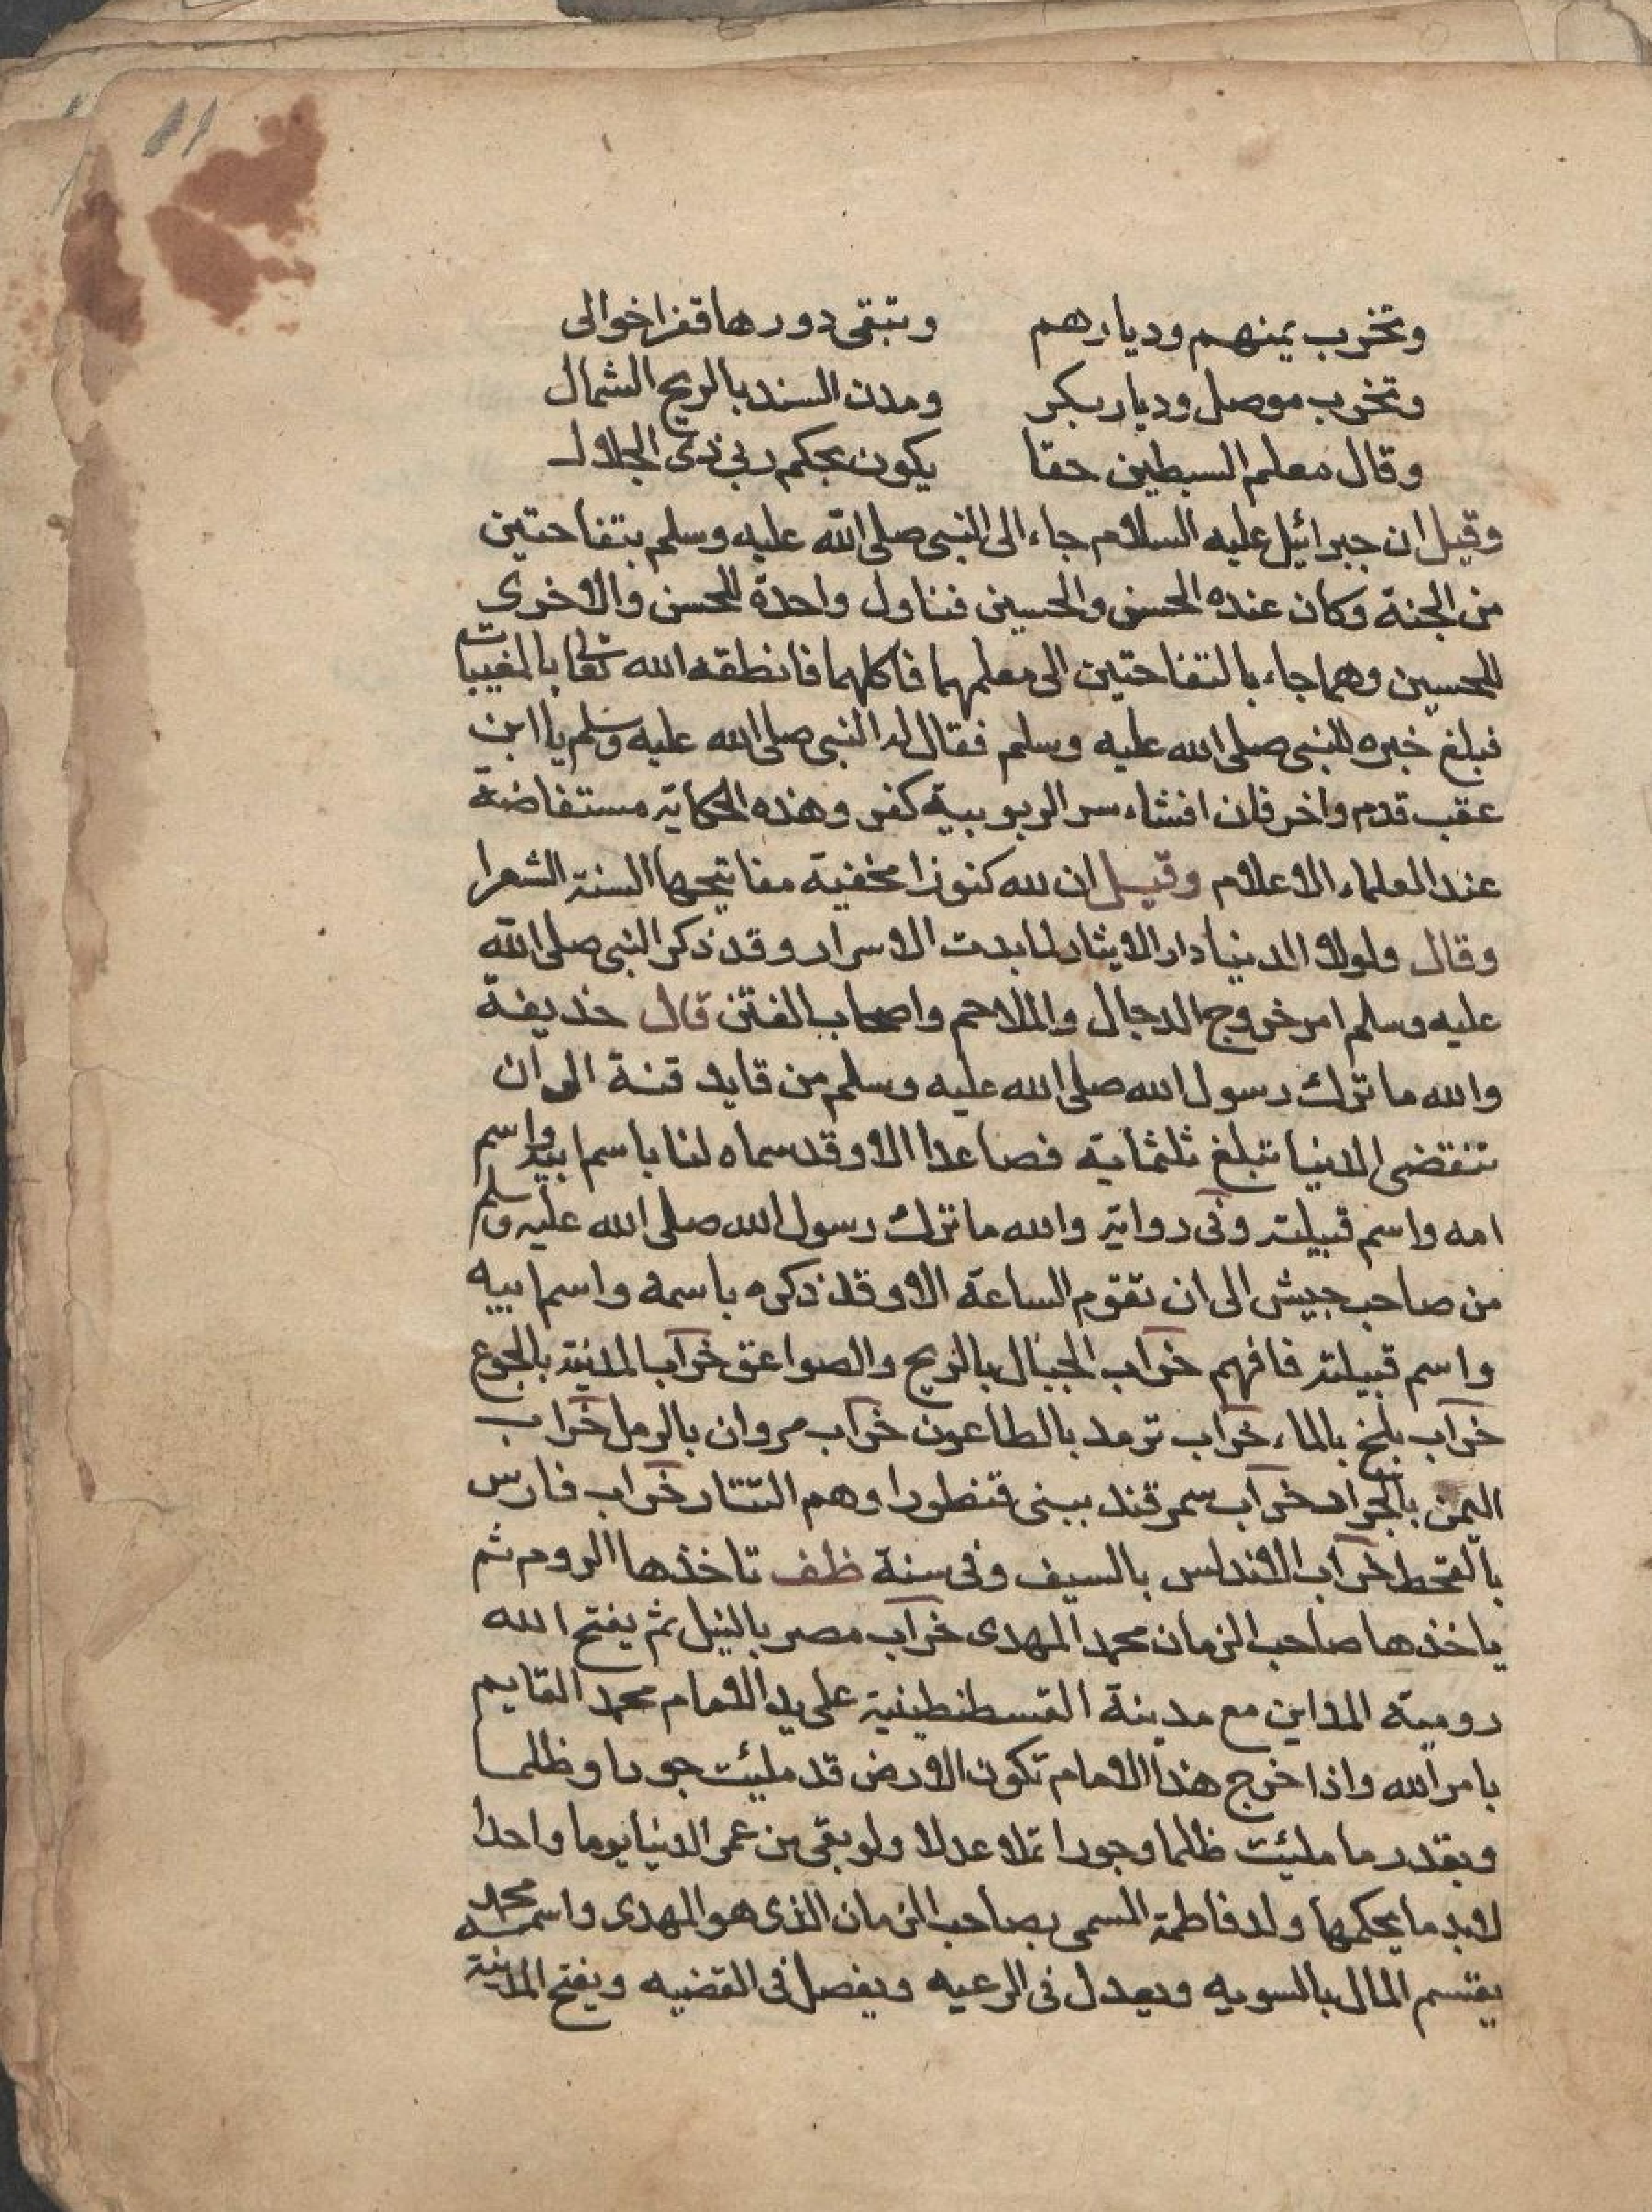 ١١
وتخرب يمنهم وديارهم وتبقى دورها قفرا خوالى
وتخرب موصل وديار بكر ومدن السند بالريح الشمال
وقال معلم السبطين حقا يكون بحكم ربي ذى الجلال
وقيل ان جبرائيل عليه السلام جاء الى النبى صلى الله عليه وسلم بتفاحتين
من الجنة وكان عنده الحسن والحسين فناول واحدة للحسن والاخرى
للحسين وهما جاء بالتفاحتين الى معلمهما فاكلهما فانطقه الله تعالى بالمغيبات
فبلغ خبره للنبى صلى الله عليه وسلم فقال له النبى صلى الله عليه وسلم يا ابن
عقب قدم واخر فان افشاء سر الربوبية كفر وهذه الحكاية مستفاضة
عند العلماء الاعلام وقيل ان لله كنوزا مخفية مفاتيحها السنة الشعرا
وقال ولولا الدنيا دار الايثار لما بدت الاسرار وقد ذكر النبى صلى الله
عليه وسلم امر خروج الدجال والملاحم واصحاب الفتن قال حذيفة
والله ما ترك رسول الله صلى الله عليه وسلم من قايد قتنة الى ان
تنقضى الدنيا تبلغ ثلثماية فصاعدا الا وقد سماه لنا باسم ابيه واسم
امه واسم قبيلته وفى رواية والله ما ترك رسول الله صلى الله عليه وسلم
من صاحب جيش الى ان تقوم الساعة الا وقد ذكره باسمه واسم ابيه
واسم قبيلته فافهم خراب الجبال بالريح والصواعق خراب المدينة بالجوع
خراب بلخ بالماء خراب ترمد بالطاعون خراب مروان بالرمل خراب
اليمن بالجراد خراب سمرقند ببنى قنطورا وهم التتار خراب فارس
بالقحط خراب الاندلس بالسيف وفى سنة ظف تاخذها الروم ثم
ياخذها صاحب الزمان محمد المهدى خراب مصر بالنيل ثم يفتح الله
رومية المداين مع مدينة القسطنطينية على يد الامام محمد القايم
بامر الله واذا خرج هذا الامام تكون الارض قد ملئت جورا وظلما
وبقدر ما ملئت ظلما وجورا تملا عدلا ولو بقى من عمر الدنيا يوما واحدا
لابد ما يحكمها ولد فاطمة المسمى بصاحب الزمان الذى هو المهدى واسمه محمد
يقتسم المال بالسويه ويعدل فى الرعيه ويفصل فى القضيه ويفتح المدينة